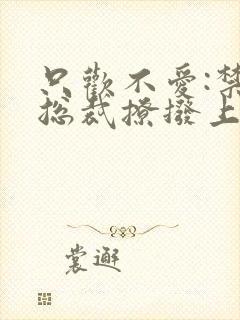 只歡不愛:禁
總裁撩撥上
裳邂